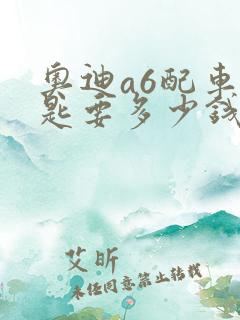 奥迪a6配車
匙要多少錢
艾昕
未经同意禁止转载